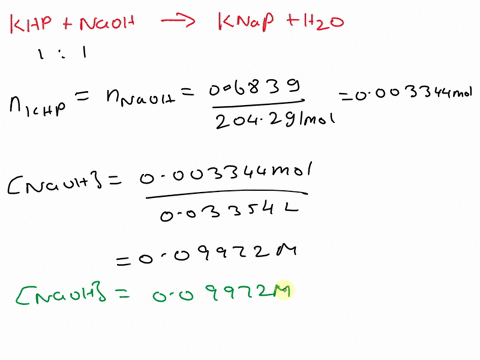 KHP + NaOH → KNaP + H2O
1 : 1
nKHP = nNaOH = 0.6839 / 204.2 g/mol = 0.003344 mol
[NaOH] = 0.003344 mol / 0.03354 L
= 0.09972 M
[NaOH] = 0.09972 M